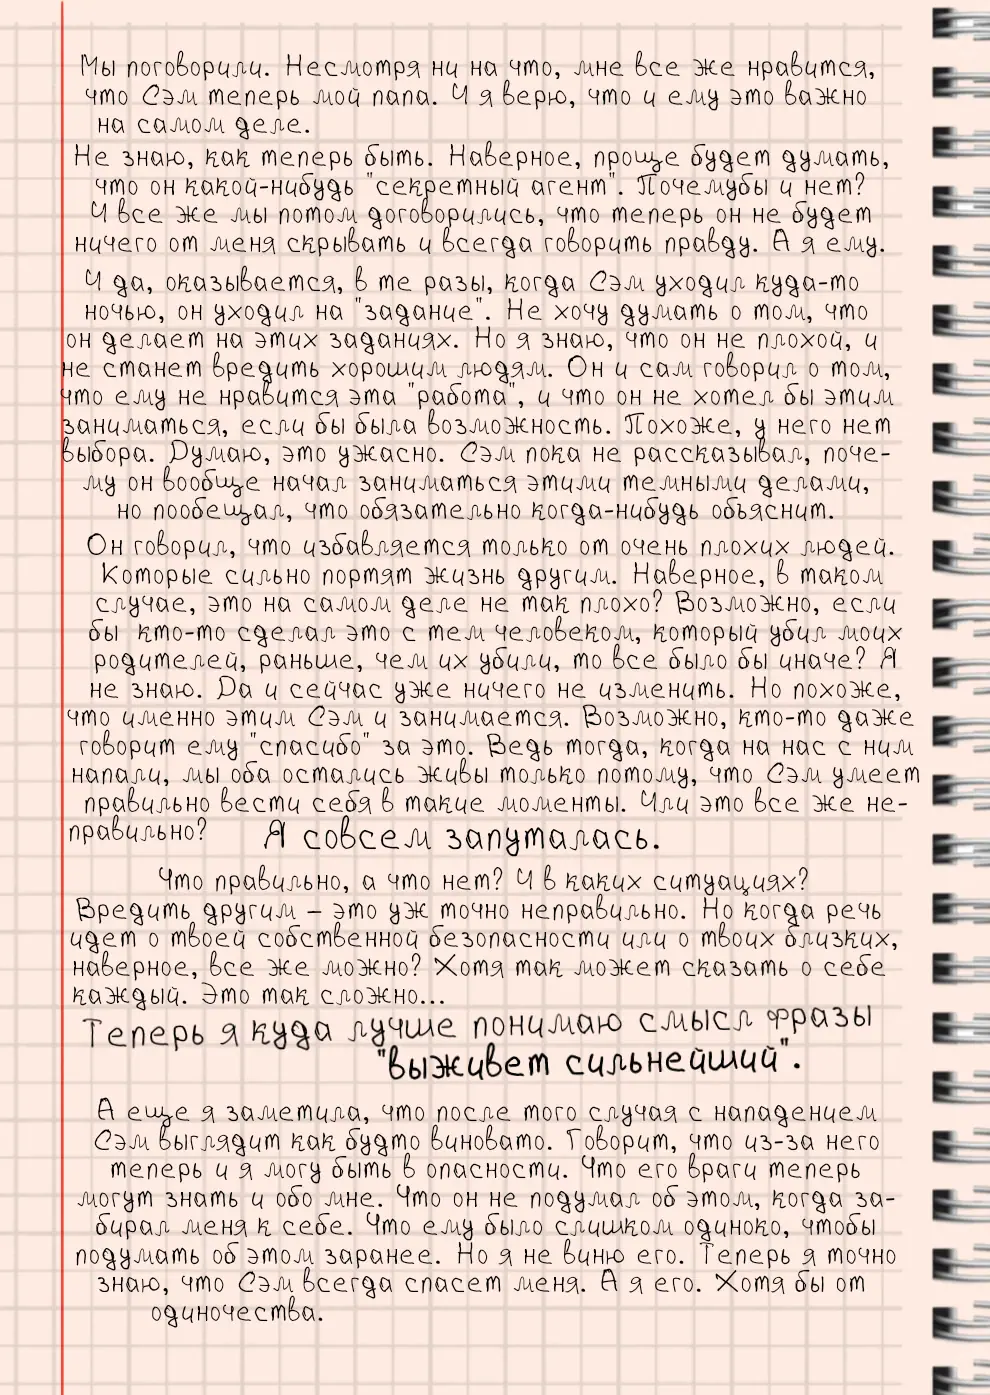 Мы поговорили. Несмотря ни на что, мне все же нравится,
что Сэм теперь мой папа. И я верю, что и ему это важно
на самом деле.
Не знаю, как теперь быть. Наверное, проще будет думать,
что он какой-нибудь "секретный агент". Почемубы и нет?
И все же мы потом договорились, что теперь он не будет
ничего от меня скрывать и всегда говорить правду. А я ему.
И да, оказывается, в те разы, когда Сэм уходил куда-то
ночью, он уходил на "задание". Не хочу думать о том, что
он делает на этих заданиях. Но я знаю, что он не плохой, и
не станет вредить хорошим людям. Он и сам говорил о том,
что ему не нравится эта "работа", и что он не хотел бы этим
заниматься, если бы была возможность. Похоже, у него нет
выбора. Думаю, это ужасно. Сэм пока не рассказывал, поче-
му он вообще начал заниматься этими темными делами,
но пообещал, что обязательно когда-нибудь объяснит.
Он говорил, что избавляется только от очень плохих людей.
Которые сильно портят жизнь другим. Наверное, в таком
случае, это на самом деле не так плохо? Возможно, если
бы кто-то сделал это с тем человеком, который убил моих
родителей, раньше, чем их убили, то все было бы иначе? Я
не знаю. Да и сейчас уже ничего не изменить. Но похоже,
что именно этим Сэм и занимается. Возможно, кто-то даже
говорит ему "спасибо" за это. Ведь тогда, когда на нас с ним
напали, мы оба остались живы только потому, что Сэм умеет
правильно вести себя в такие моменты. Или это все же не-
правильно? Я совсем запуталась.
Что правильно, а что нет? И в каких ситуациях?
Вредить другим – это уж точно неправильно. Но когда речь
идет о твоей собственной безопасности или о твоих близких,
наверное, все же можно? Хотя так может сказать о себе
каждый. Это так сложно...
Теперь я куда лучше понимаю смысл фразы
"выживет сильнейший".
А еще я заметила, что после того случая с нападением
Сэм выглядит как будто виновато. Говорит, что из-за него
теперь и я могу быть в опасности. Что его враги теперь
могут знать и обо мне. Что он не подумал об этом, когда за-
бирал меня к себе. Что ему было слишком одиноко, чтобы
подумать об этом заранее. Но я не виню его. Теперь я точно
знаю, что Сэм всегда спасет меня. А я его. Хотя бы от
одиночества.